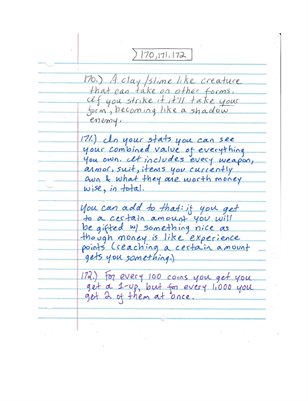 170, 171, 172
170.) A clay/slime like creature
that can take on other forms.
If you strike it it'll take your
form, becoming like a shadow
enemy.
171.) In your stats you can see
your combined value of everything
you own. It includes every weapon,
armor, suit, items you currently
own & what they are worth money
wise, in total.
You can add to that: if you get
to a certain amount you will
be gifted w/ something nice as
though money is like experience
points (reaching a certain amount
gets you something.)
172.) For every 100 coins you get you
get a 1-up, but for every 1,000 you
get 2 of them at once.